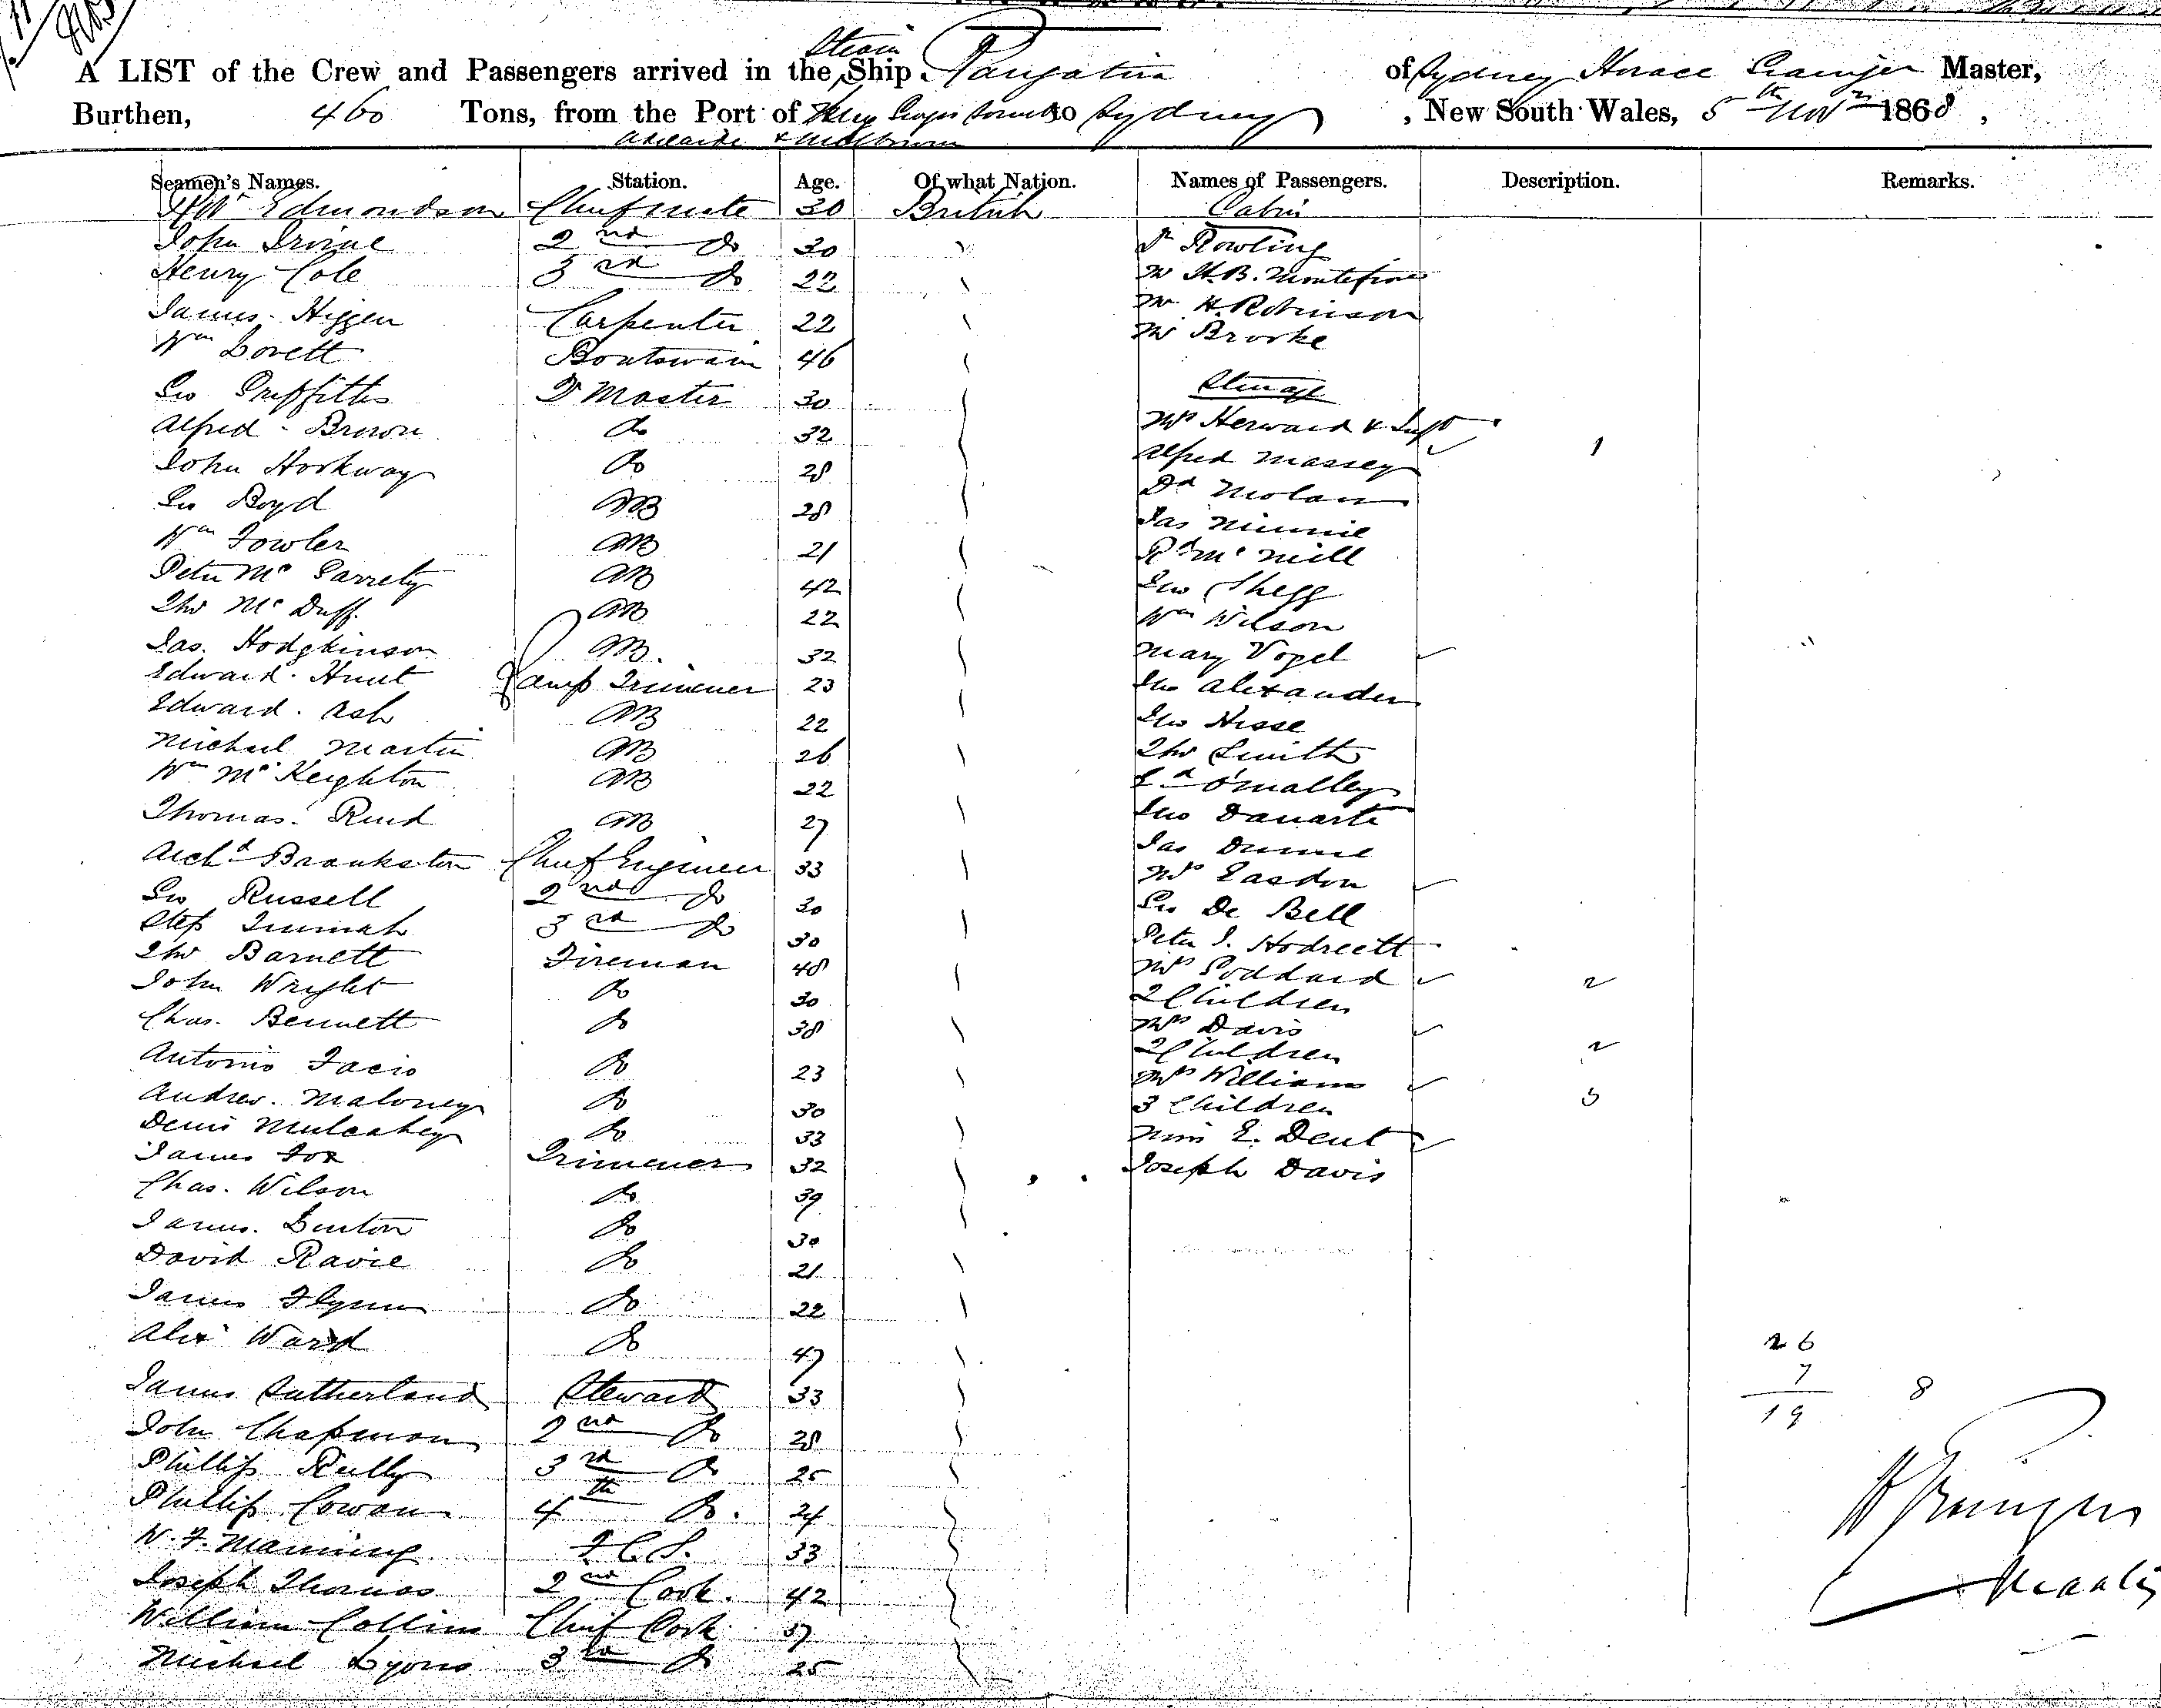 A LIST of the Crew and Passengers arrived in the Steam Ship Rangatira of Sydney Horace Grainger Master,
Burthen, 460 Tons, from the Port of King Georges Sound to Sydney, New South Wales, 5th Novr 1868,
Adelaide & Melbourne
Seamen's Names. Station. Age. Of what Nation. Names of Passengers. Description. Remarks.
Edmondson Chief mate 30 British Cabin
John Irvine 2nd Do 30
Mr Rowling
Henry Cole 3rd Do 22
Mr H.B. Montefiore
James Higgen Carpenter 22
Mr H. Robinson
Wm Lovett Boatswain 46
Mr Brooke
Geo Griffiths Q Master 30
Steerage
Alfred Brown Do 32
Mrs Herward & Inft 1
John Horkway Do 28
Alfred Massey
Geo Boyd AB 28
Dd Molan
Wm Fowler AB 21
Jas Nimmie
Peter Mc Garrety AB 42
Rd Mc Neill
Tho Mc Duff. AB 22
Jno
Jas. Hodgkinson AB. 32
Wm Wilson
Edward Hunt Lamp Trimmer 23
Mary Vogel
Edward Ash AB 22
Jno Alexander
Michael Martin AB 26
Jno Hesse
Wm Mc Keighton AB 22
Tho Smith
Thomas Reid AB 27
Ed O'Malley
Archd Brankston Chief Engineer 33
Jno Danarte
Geo Russell 2nd Do 30
Jas Dunne
Step 3rd Do 30
Mrs Easdon
Tho Barnett Fireman 48
Geo De Bell
John Wright Do 30
Peter J. Hodreett
Chas. Bennett Do 38
Mrs Goddard
2 Children 2
Antonio Facio Do 23
Mrs Davis
2 Children 2
Andrew Maloney Do 30
Mrs Williams
3 Children 3
Denis Mulcahey Do 33
Miss E. Dent
James Fox Trimmer 32
Joseph Davis
Chas. Wilson Do 39
James Linton Do 30
David Ravie Do 21
James Flynn Do 22
Alex Ward Do 47
26
7
19 8
James Sutherland Steward 33
John Chapman 2nd Do 28
Phillip Reilly 3rd Do 25
Phillip Cowan 4th Do. 24
H Grainger
W. F. Manning F.C.S. 33
Joseph Thomas 2nd Cook. 42
Master
William Collins Chief Cook 37
Michael Lyons 3rd Do 25